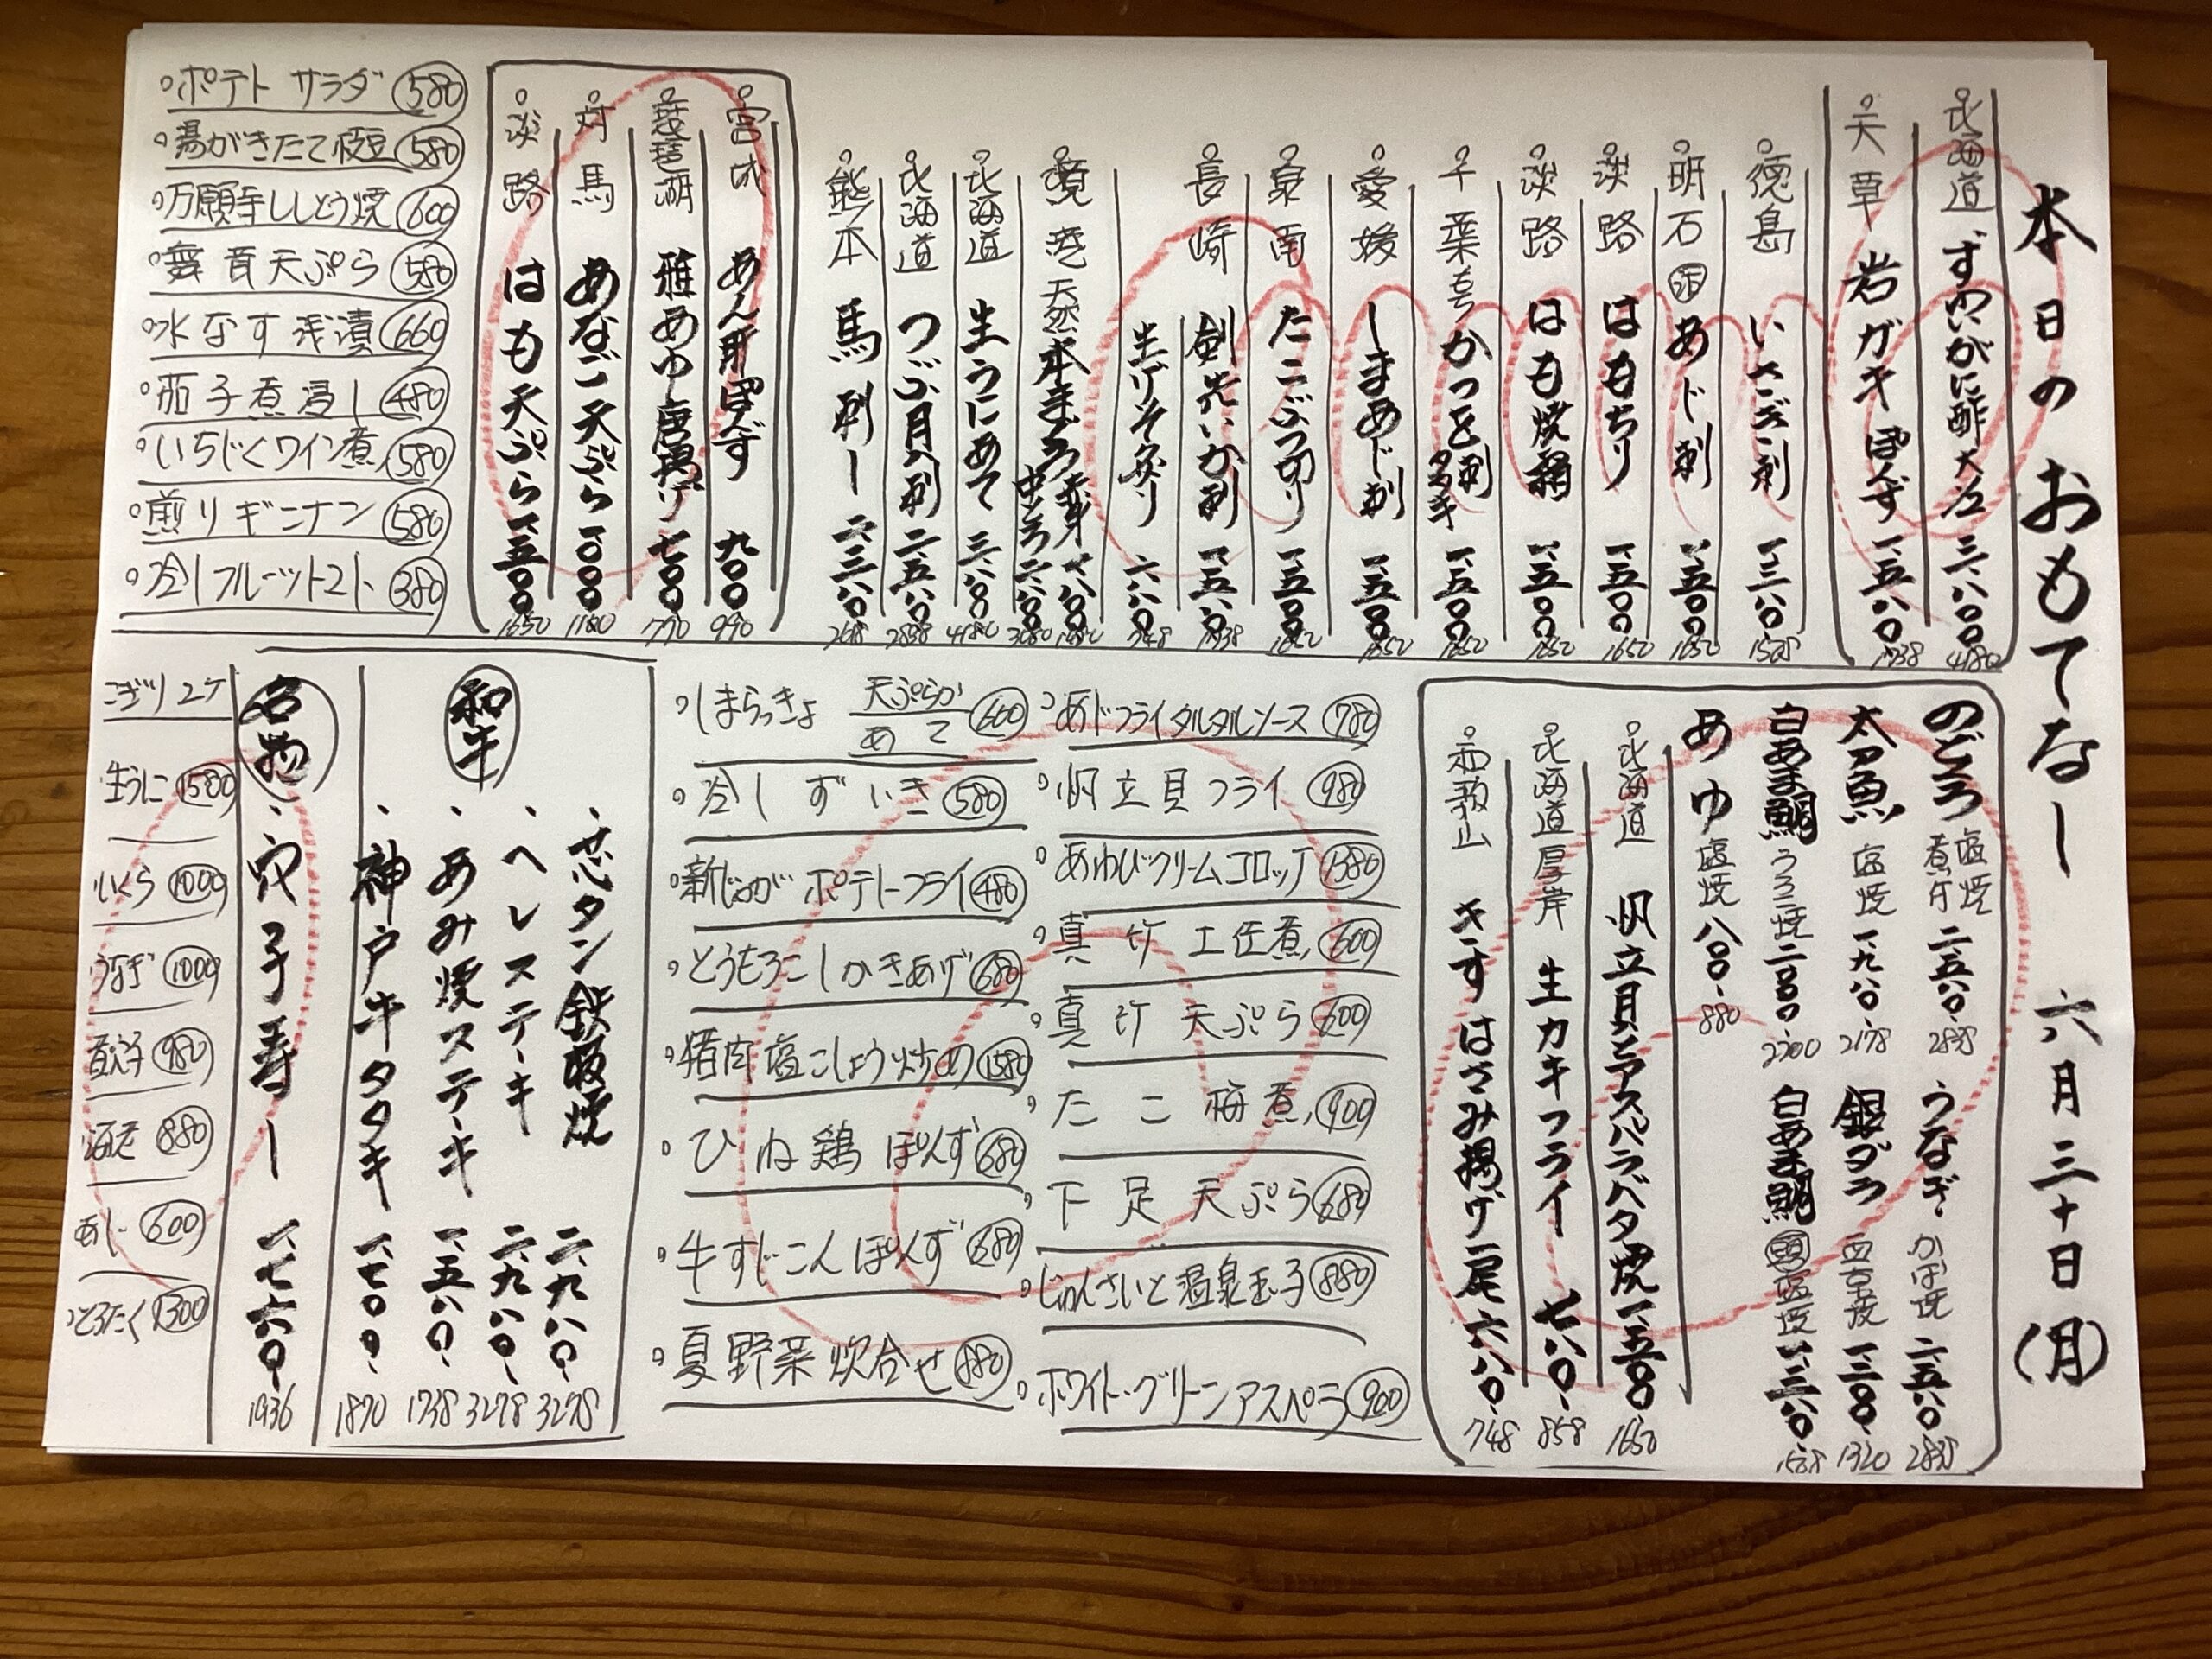 本日のおもてなし 六月三十日(月)
北海道 ずわいがに酢 大江 三、八〇〇 4180
天草 岩ガキ ぽんず 一、五八〇 1738
徳島 いさぎ刺 一、三八〇 1518
明石 活 あじ刺 一、五〇〇 1650
淡路 はもちり 一、五〇〇 1650
淡路 はも焼霜 一、五〇〇 1650
千葉 もち かつを刺 タタキ 一、五〇〇 1650
愛媛 しまあじ刺 一、五〇〇 1650
泉南 たこぶつ切り 一、五〇〇 1650
長崎 剣先いか刺 一、五八〇 1738
生げそ炙り 六八〇 748
境港 天然本まぐろ 赤身 一、八〇〇 1980
中とろ 二、八〇〇 3080
北海道 生うにあて 三、八〇〇 4180
北海道 つぶ貝刺 二、五八〇 2838
熊本 馬刺し 二、三八〇 2618
宮城 あん肝ぽんず 九〇〇 990
琵琶湖 稚あゆ唐揚げ 七〇〇 770
対馬 あなご天ぷら 一、〇〇〇 1100
淡路 はも天ぷら 一、五〇〇 1650
ポテトサラダ 580
湯がきたて枝豆 580
万願寺ししとう焼 600
舞茸天ぷら 580
水なす浅漬 660
茄子煮浸し 480
いちじくワイン煮 580
煎りギンナン 580
冷しフルーツトマト 380
のどぐろ 塩焼 煮付 二、五八〇 2838
うなぎ かば焼 二、五八〇 2838
太刀魚 塩焼 一、九八〇 2178
銀ダラ 西京焼 一、二〇〇 1320
白あま鯛 うろこ焼 二、〇〇〇 2200
白あま鯛 頭 塩焼 一、三八〇 1518
あゆ 塩焼 八〇〇 880
北海道 帆立貝とアスパラバタ焼 一、五〇〇 1650
北海道厚岸 生カキフライ 七八〇 858
和歌山 きすはさみ揚げ 一尾 六八〇 748
あじフライタルタルソース 780
帆立貝フライ 980
あわびクリームコロッケ 1380
真竹土佐煮 600
真竹天ぷら 600
たこ梅煮 900
下足天ぷら 680
じゅんさいと温泉玉子 880
ホワイト・グリーンアスペラ 900
しまらっきょ 天ぷらか あて 600
冷しずいき 580
新じゃがポテトフライ 480
とうもろこしかきあげ 680
猪肉塩こしょう炒め 1580
ひね鶏ぽんず 680
牛すじこんぽんず 680
夏野菜炊合せ 880
和牛
・芯タン鉄板焼 二、九八〇 3278
・ヘレステーキ 二、九八〇 3278
・あみ焼ステーキ 一、五八〇 1738
・神戸牛タタキ 一、七〇〇 1870
名物
・穴子寿し 一、七六〇 1936
にぎり2ケ
生うに 1580
いくら 1000
うなぎ 1000
980
海老 880
あじ 600
とろたく 1300